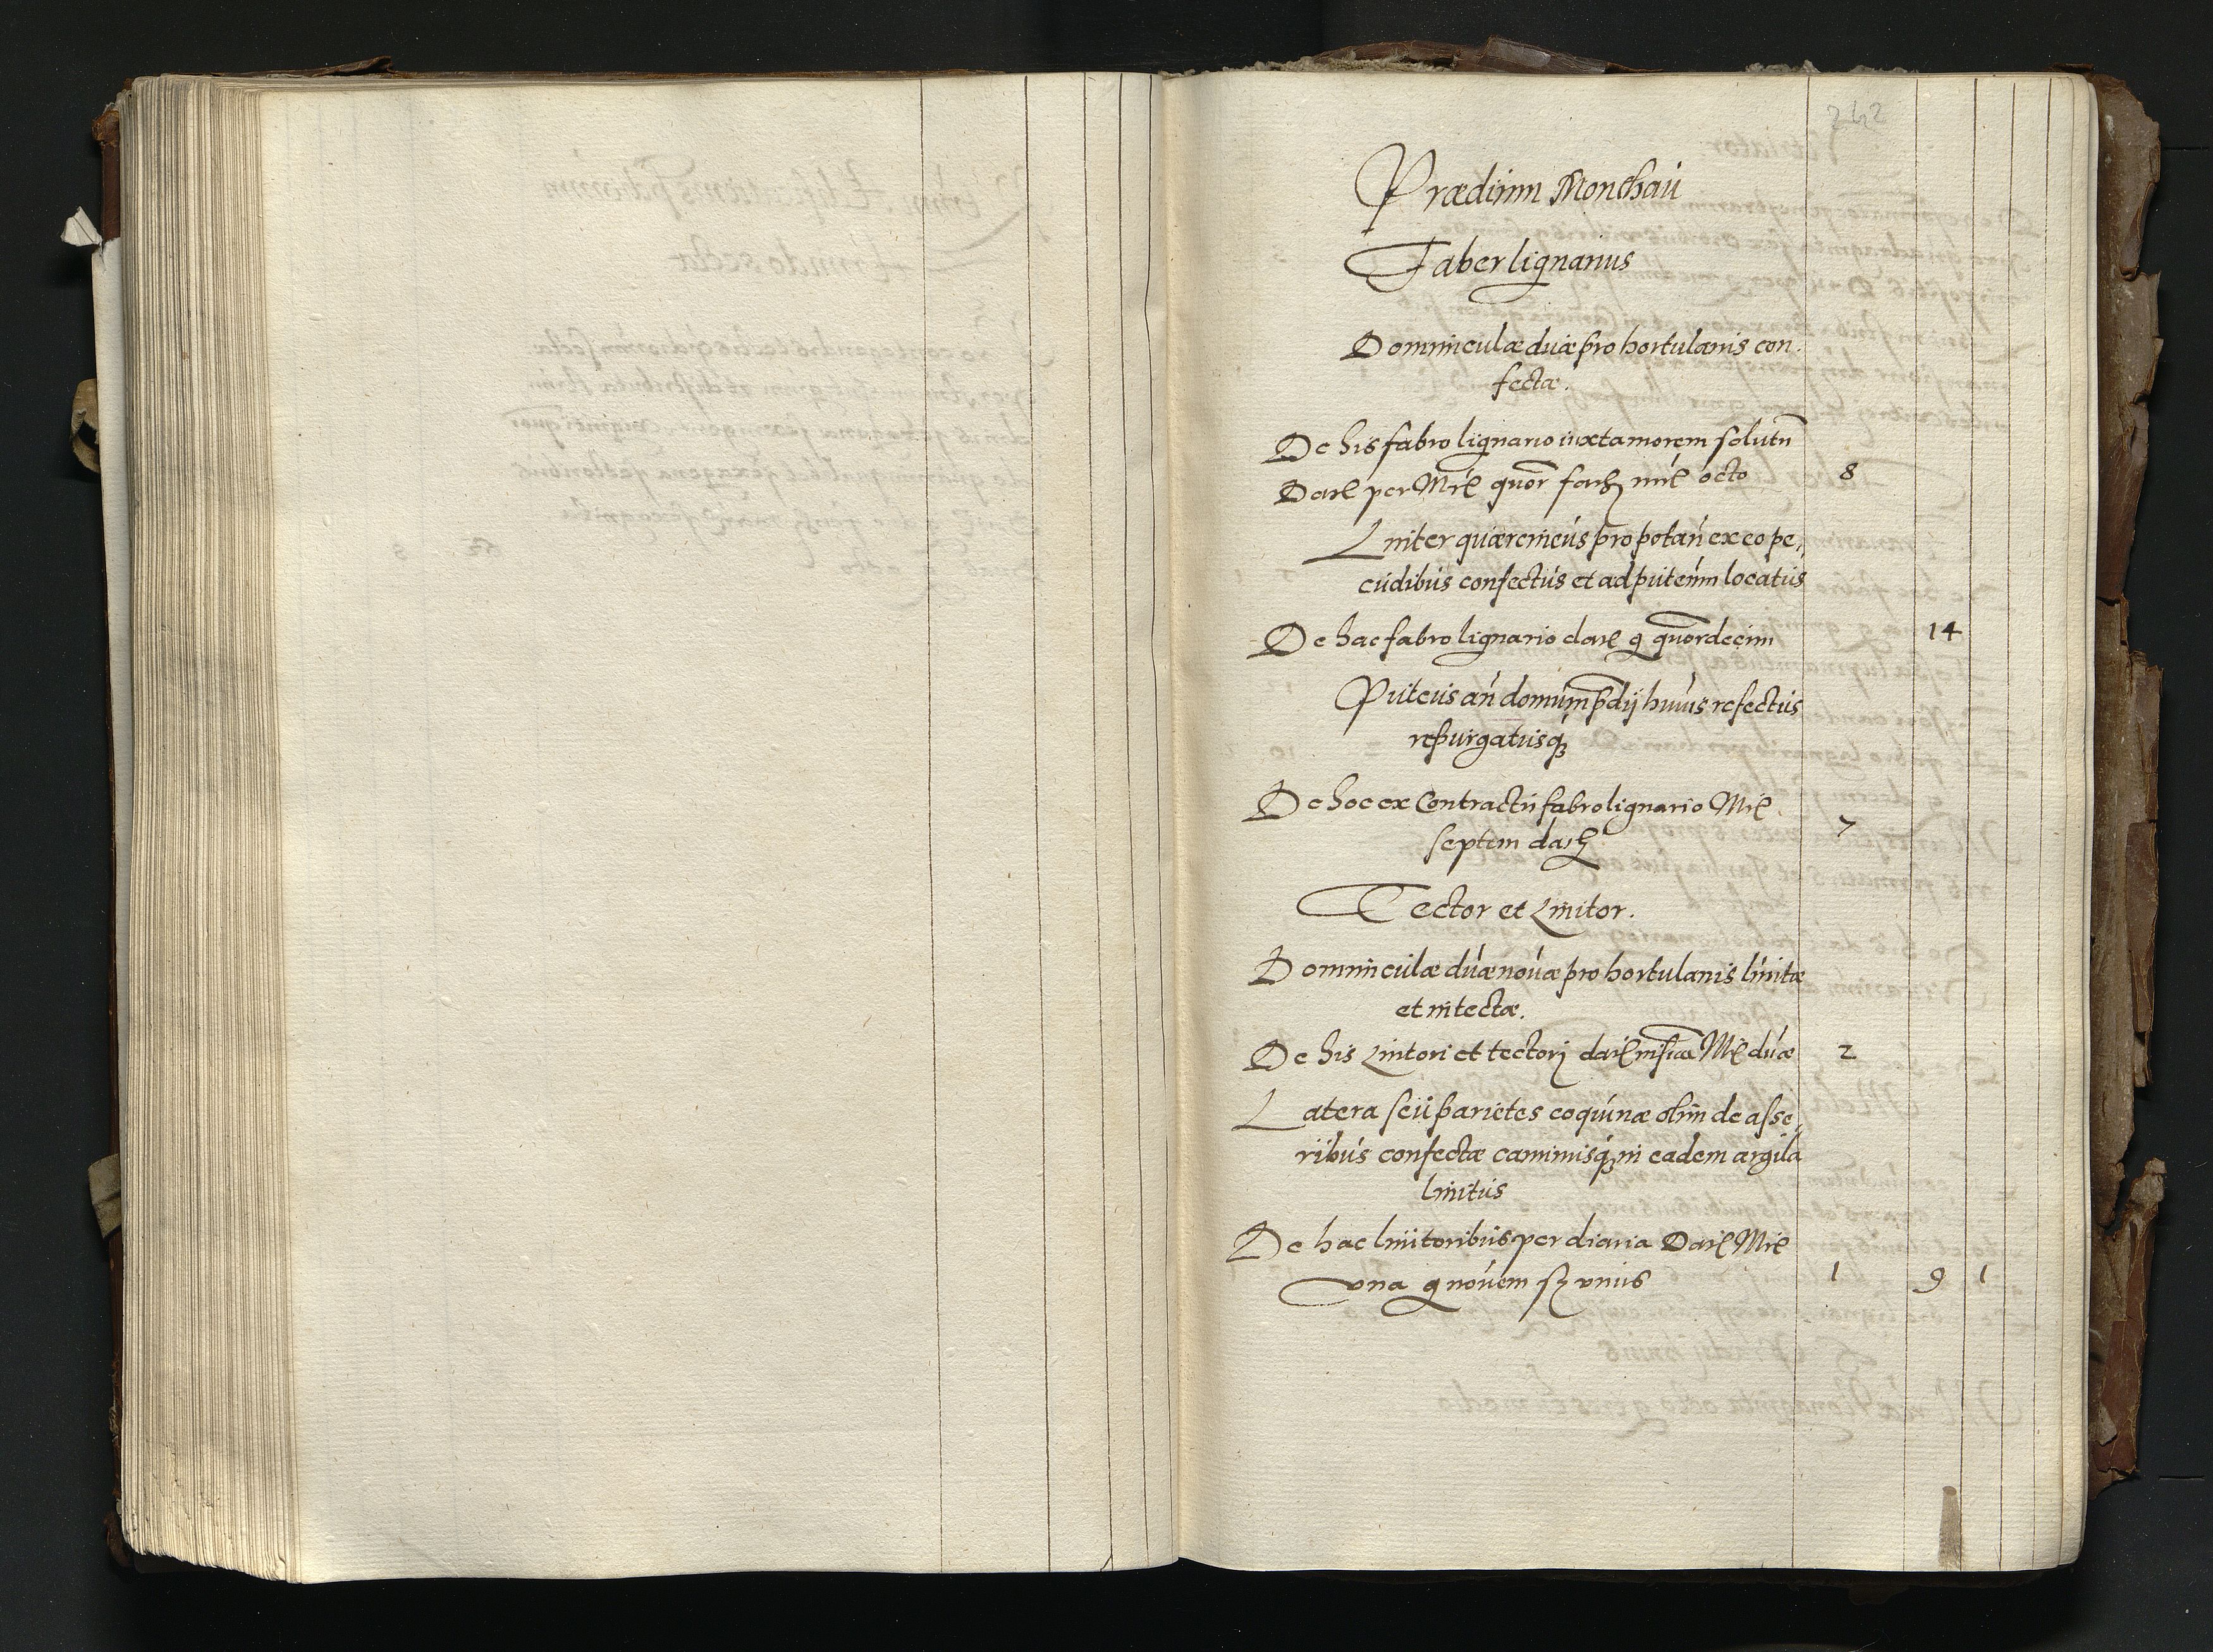 242
Prædium Monchaü
Faber lignarius
Domunculæ duæ pro hortulanis con,
fectæ.
De his fabro lignario iuxta morem solutũ
per Mrc̃ quor̃ mrc̃ octo 8
Linter quærcineús pro potań ex eo pe,
cúdibús confectús et ad púteúm locatús
De hac fabro lignario dat̃ g quordecim 14
Púteús ań domúm p̃dij húiús refectús
repúrgatúsq́ꝫ
De hoc ex Contractú fabro lignario Mrc̃
septem 7
Tector et Linitor.
Domúncúlæ dúæ noúæ pro hortulanis linitæ
et intectæ.
De his Linitori et tectorj Mrc̃ dúæ 2
Latera seú parietes coqúinæ olim de asse,
ribús confectæ caminúsq́ꝫ in eadem argila
linitús
De hac linitoribús per diaria Mrc̃
vna g noúem vniús 1 9 1